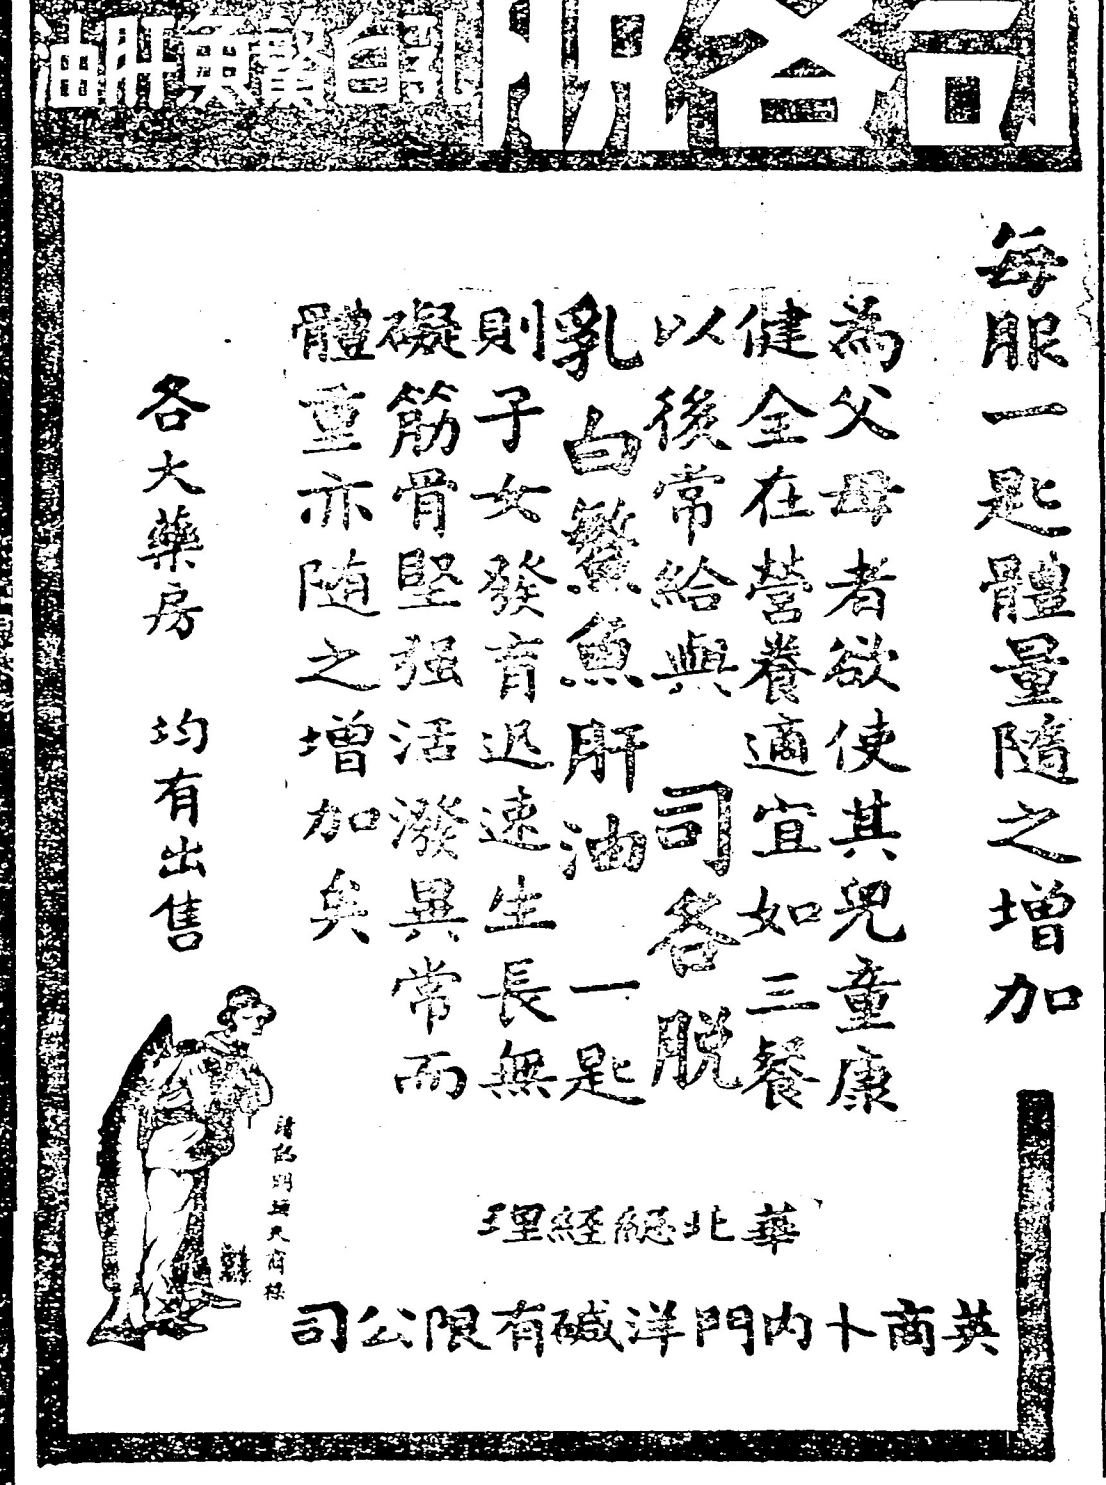 司各脫
乳白鰵魚肝油
每服一匙體量隨之增加
為父母者欲使其兒童康
健全在營養適宜如三餐
以後常給與 司各脫
乳白鰵魚肝油一匙
則子女發育迅速生長無
礙筋骨堅强活潑異常而
體重亦随之增加矣
各大藥房 均有出售
請認明魚夫商標
華北總經理
英商卜內門洋碱有限公司